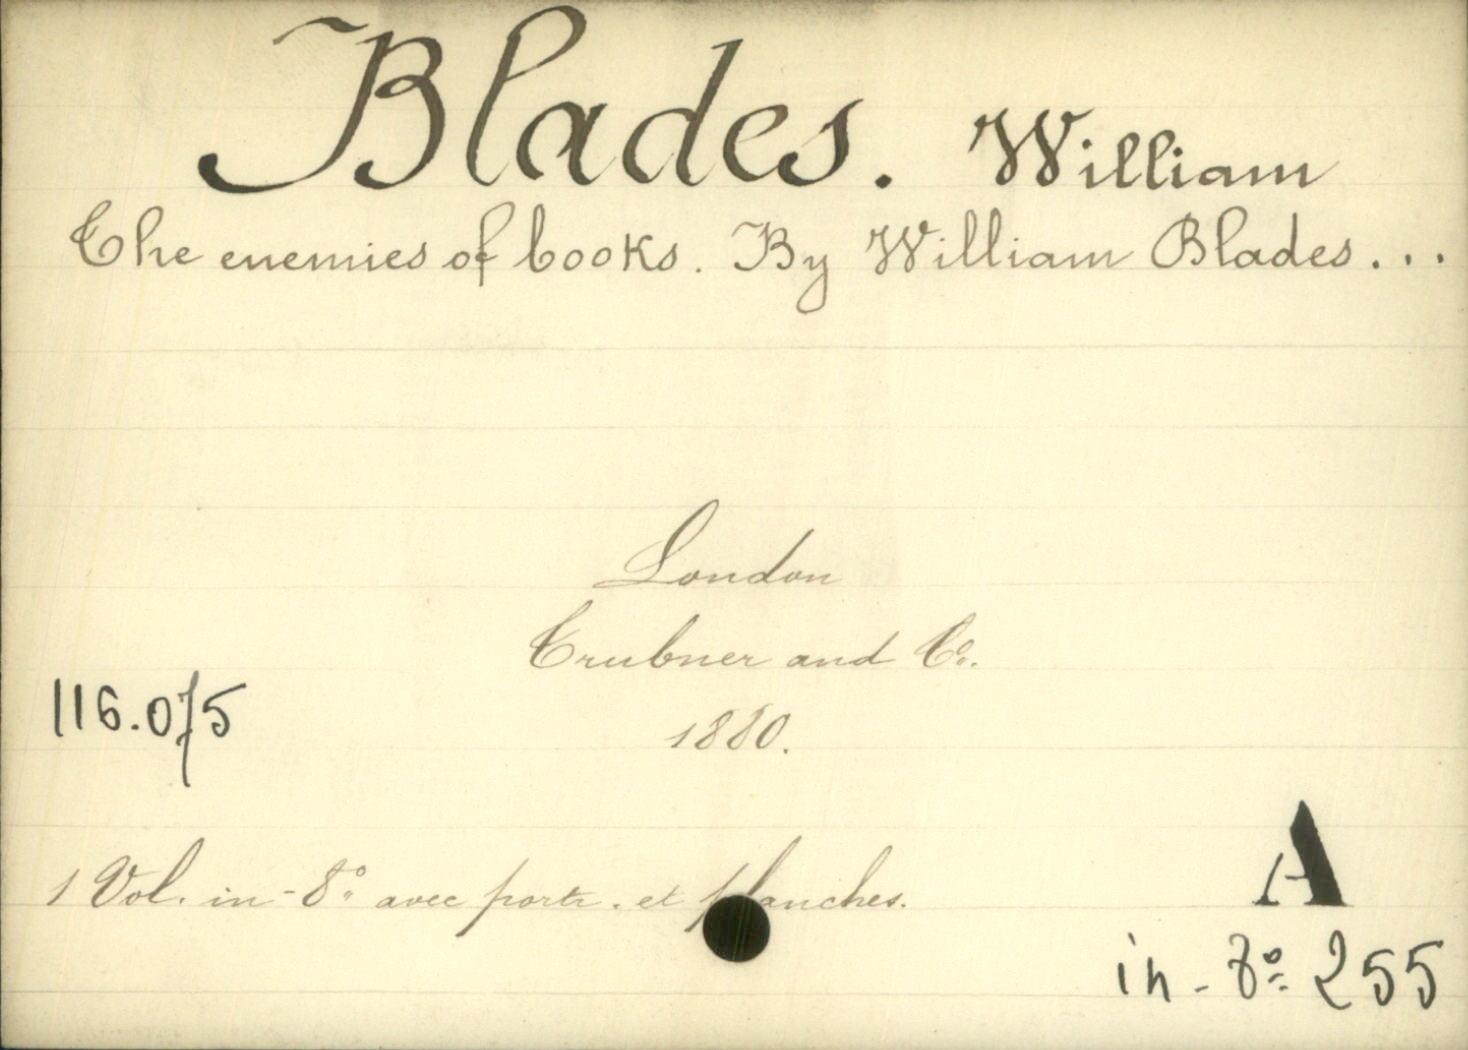 Blades. William
The enemies of books. By William Blades...
London
Trubner and Co.
1880.
116.075
1 Vol. in-8° avec portr. et planches.
A
in-8° 255